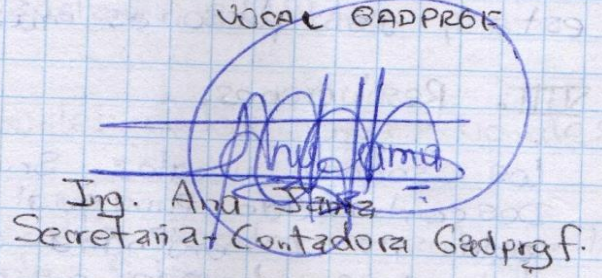 VOCAL GADPRGF
Ing. Ana
Secretaria-Contadora Gadprgf.